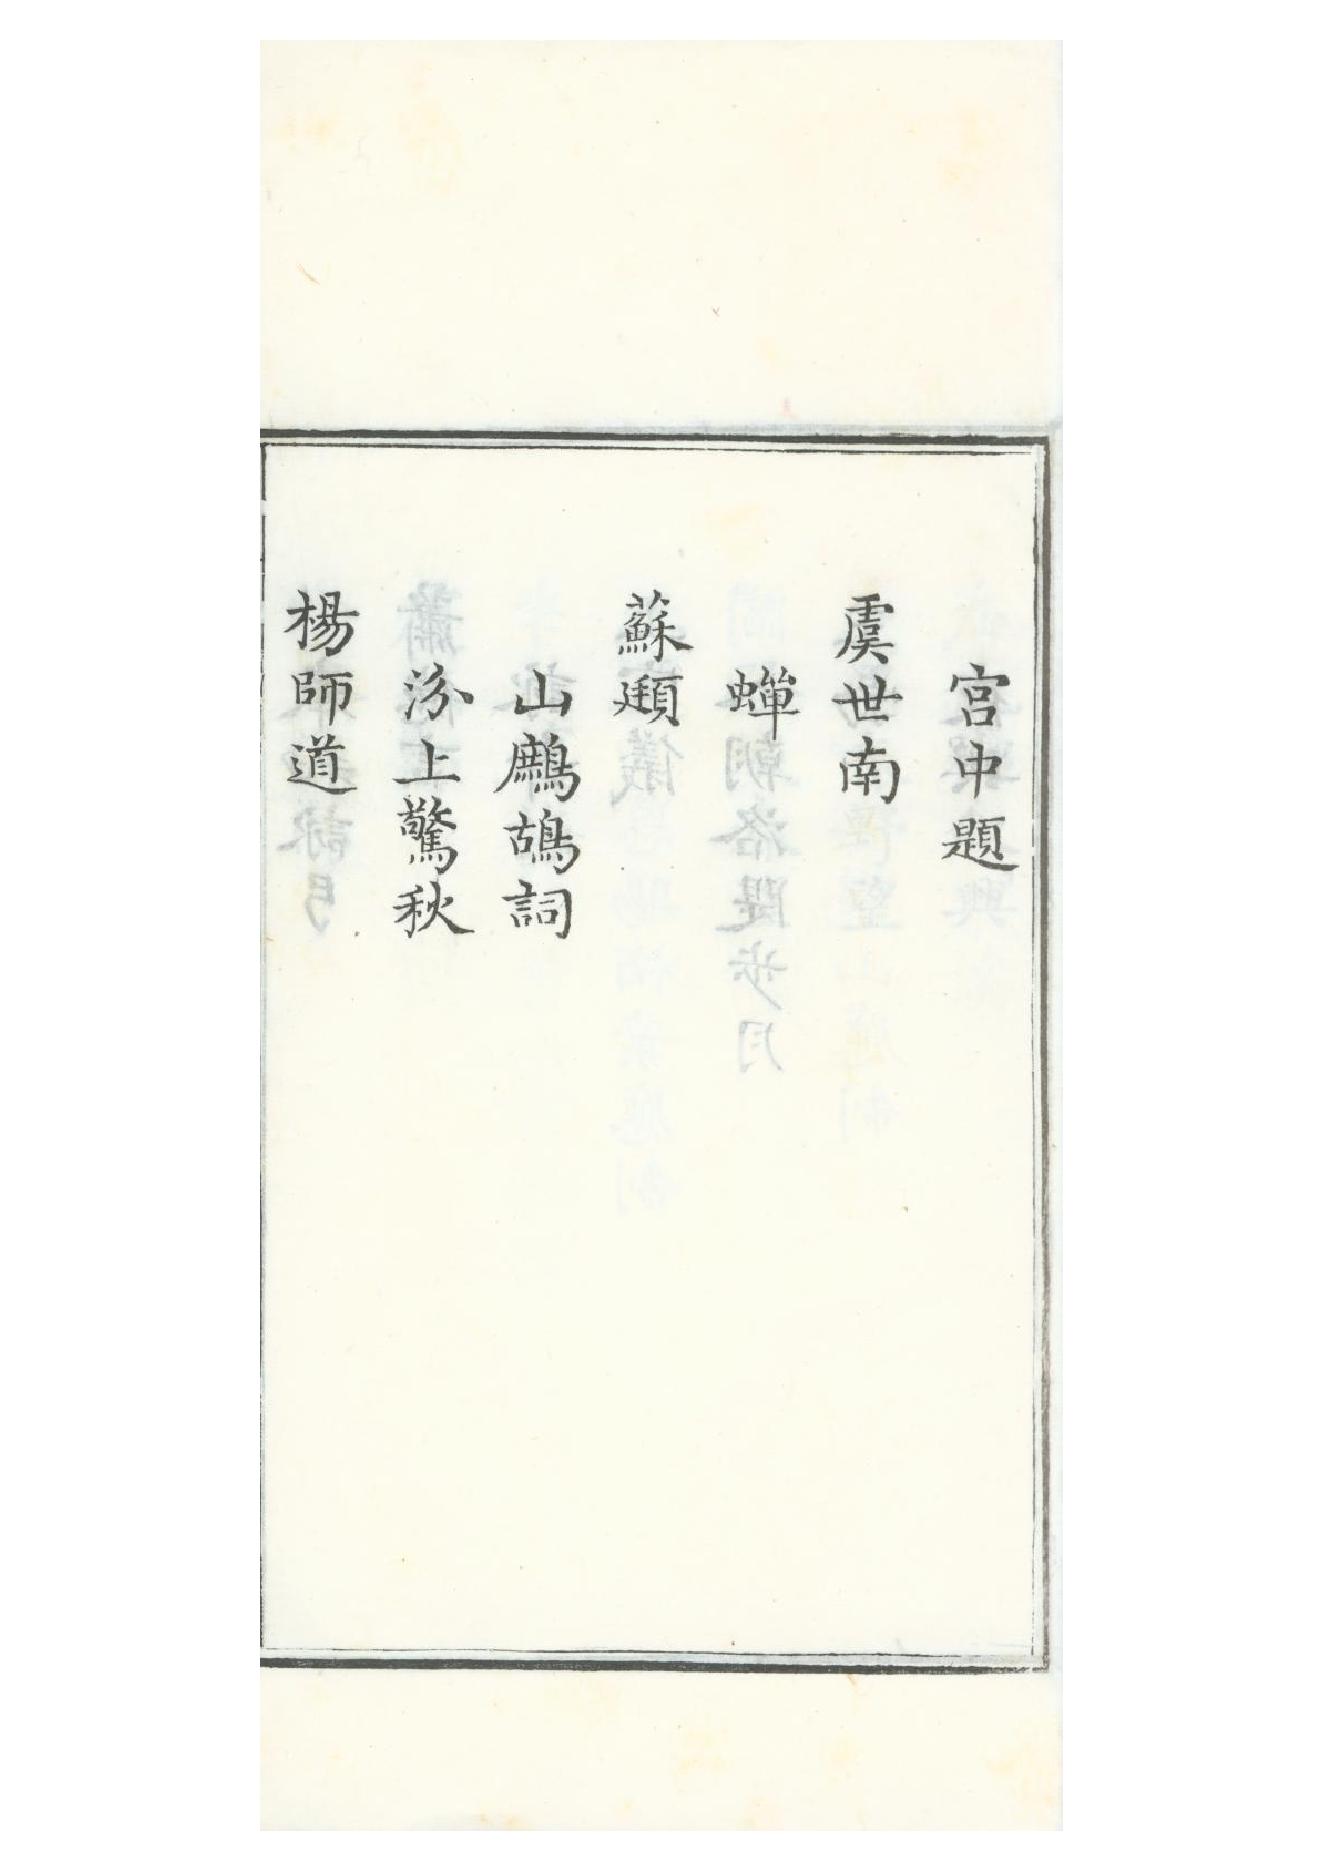 宮中題
虞世南
蟬
蘇頲
山鷓鴣詞
汾上驚秋
楊師道